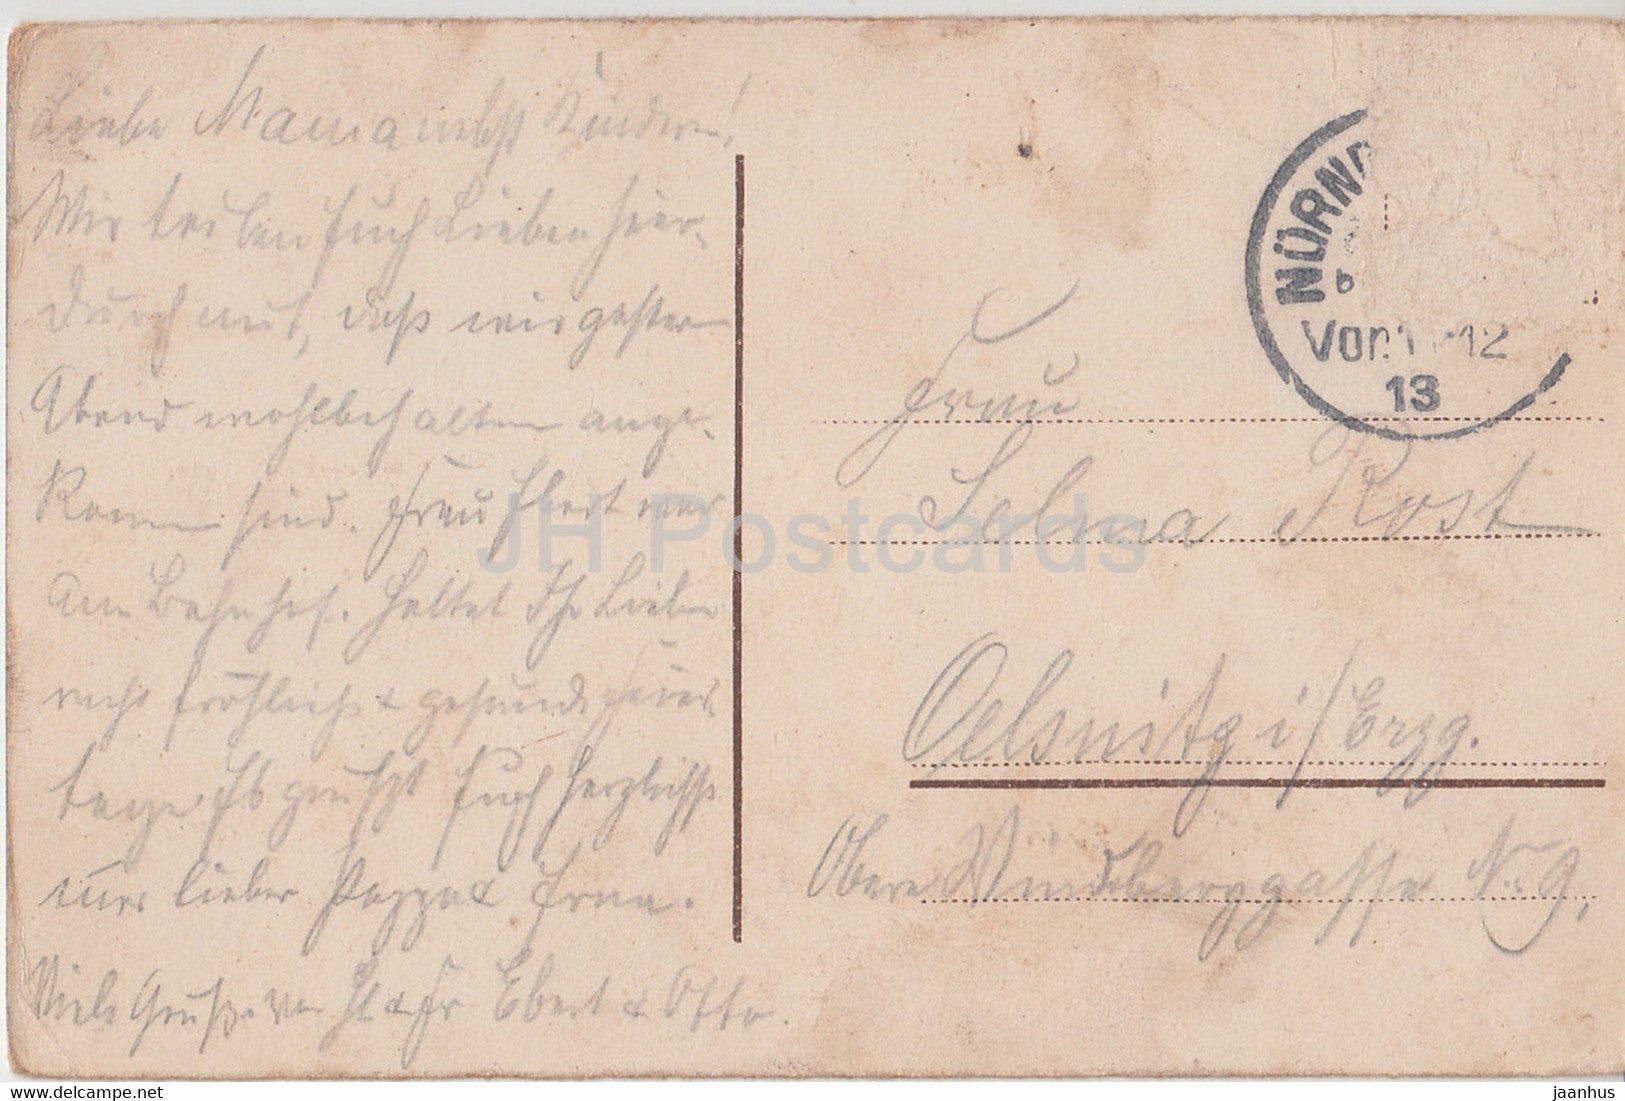 Liebe Mama nebst Kindern!
Wir teilen Euch Lieben hier-
durch mit, daß wir gestern
Abend wohlbehalten ange-
kommen sind. Frau Ebert war
am Bahnhof. Haltet Ihr Lieben
recht fröhlich & gesunde Feier-
tage. Es grüßt Euch herzlichst
Euer lieber Pappa & Erna.
Viele Grüße von H & Fr Ebert & Otto.
NÜRNB
Vorm 12
13
Frau
Selma Rost
Oelsnitz i/Erzg.
Obere Windberggasse No 9,
JH Postcards
www.delcampe.net
jaanhus